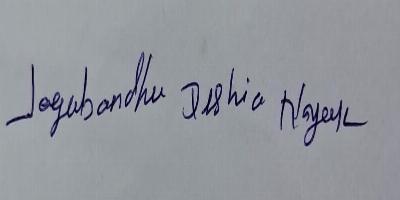 Jogabandhu Dishia Nayak